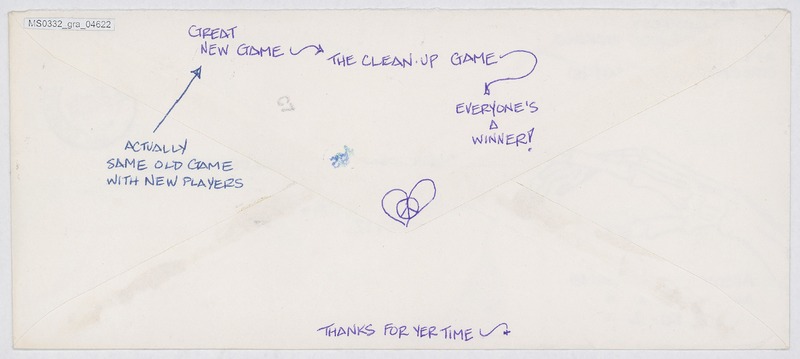 MS0332_gra_04622
GREAT
NEW GAME
THE CLEAN-UP GAME
EVERYONE'S
A
WINNER!
ACTUALLY
SAME OLD GAME
WITH NEW PLAYERS
THANKS FOR YER TIME